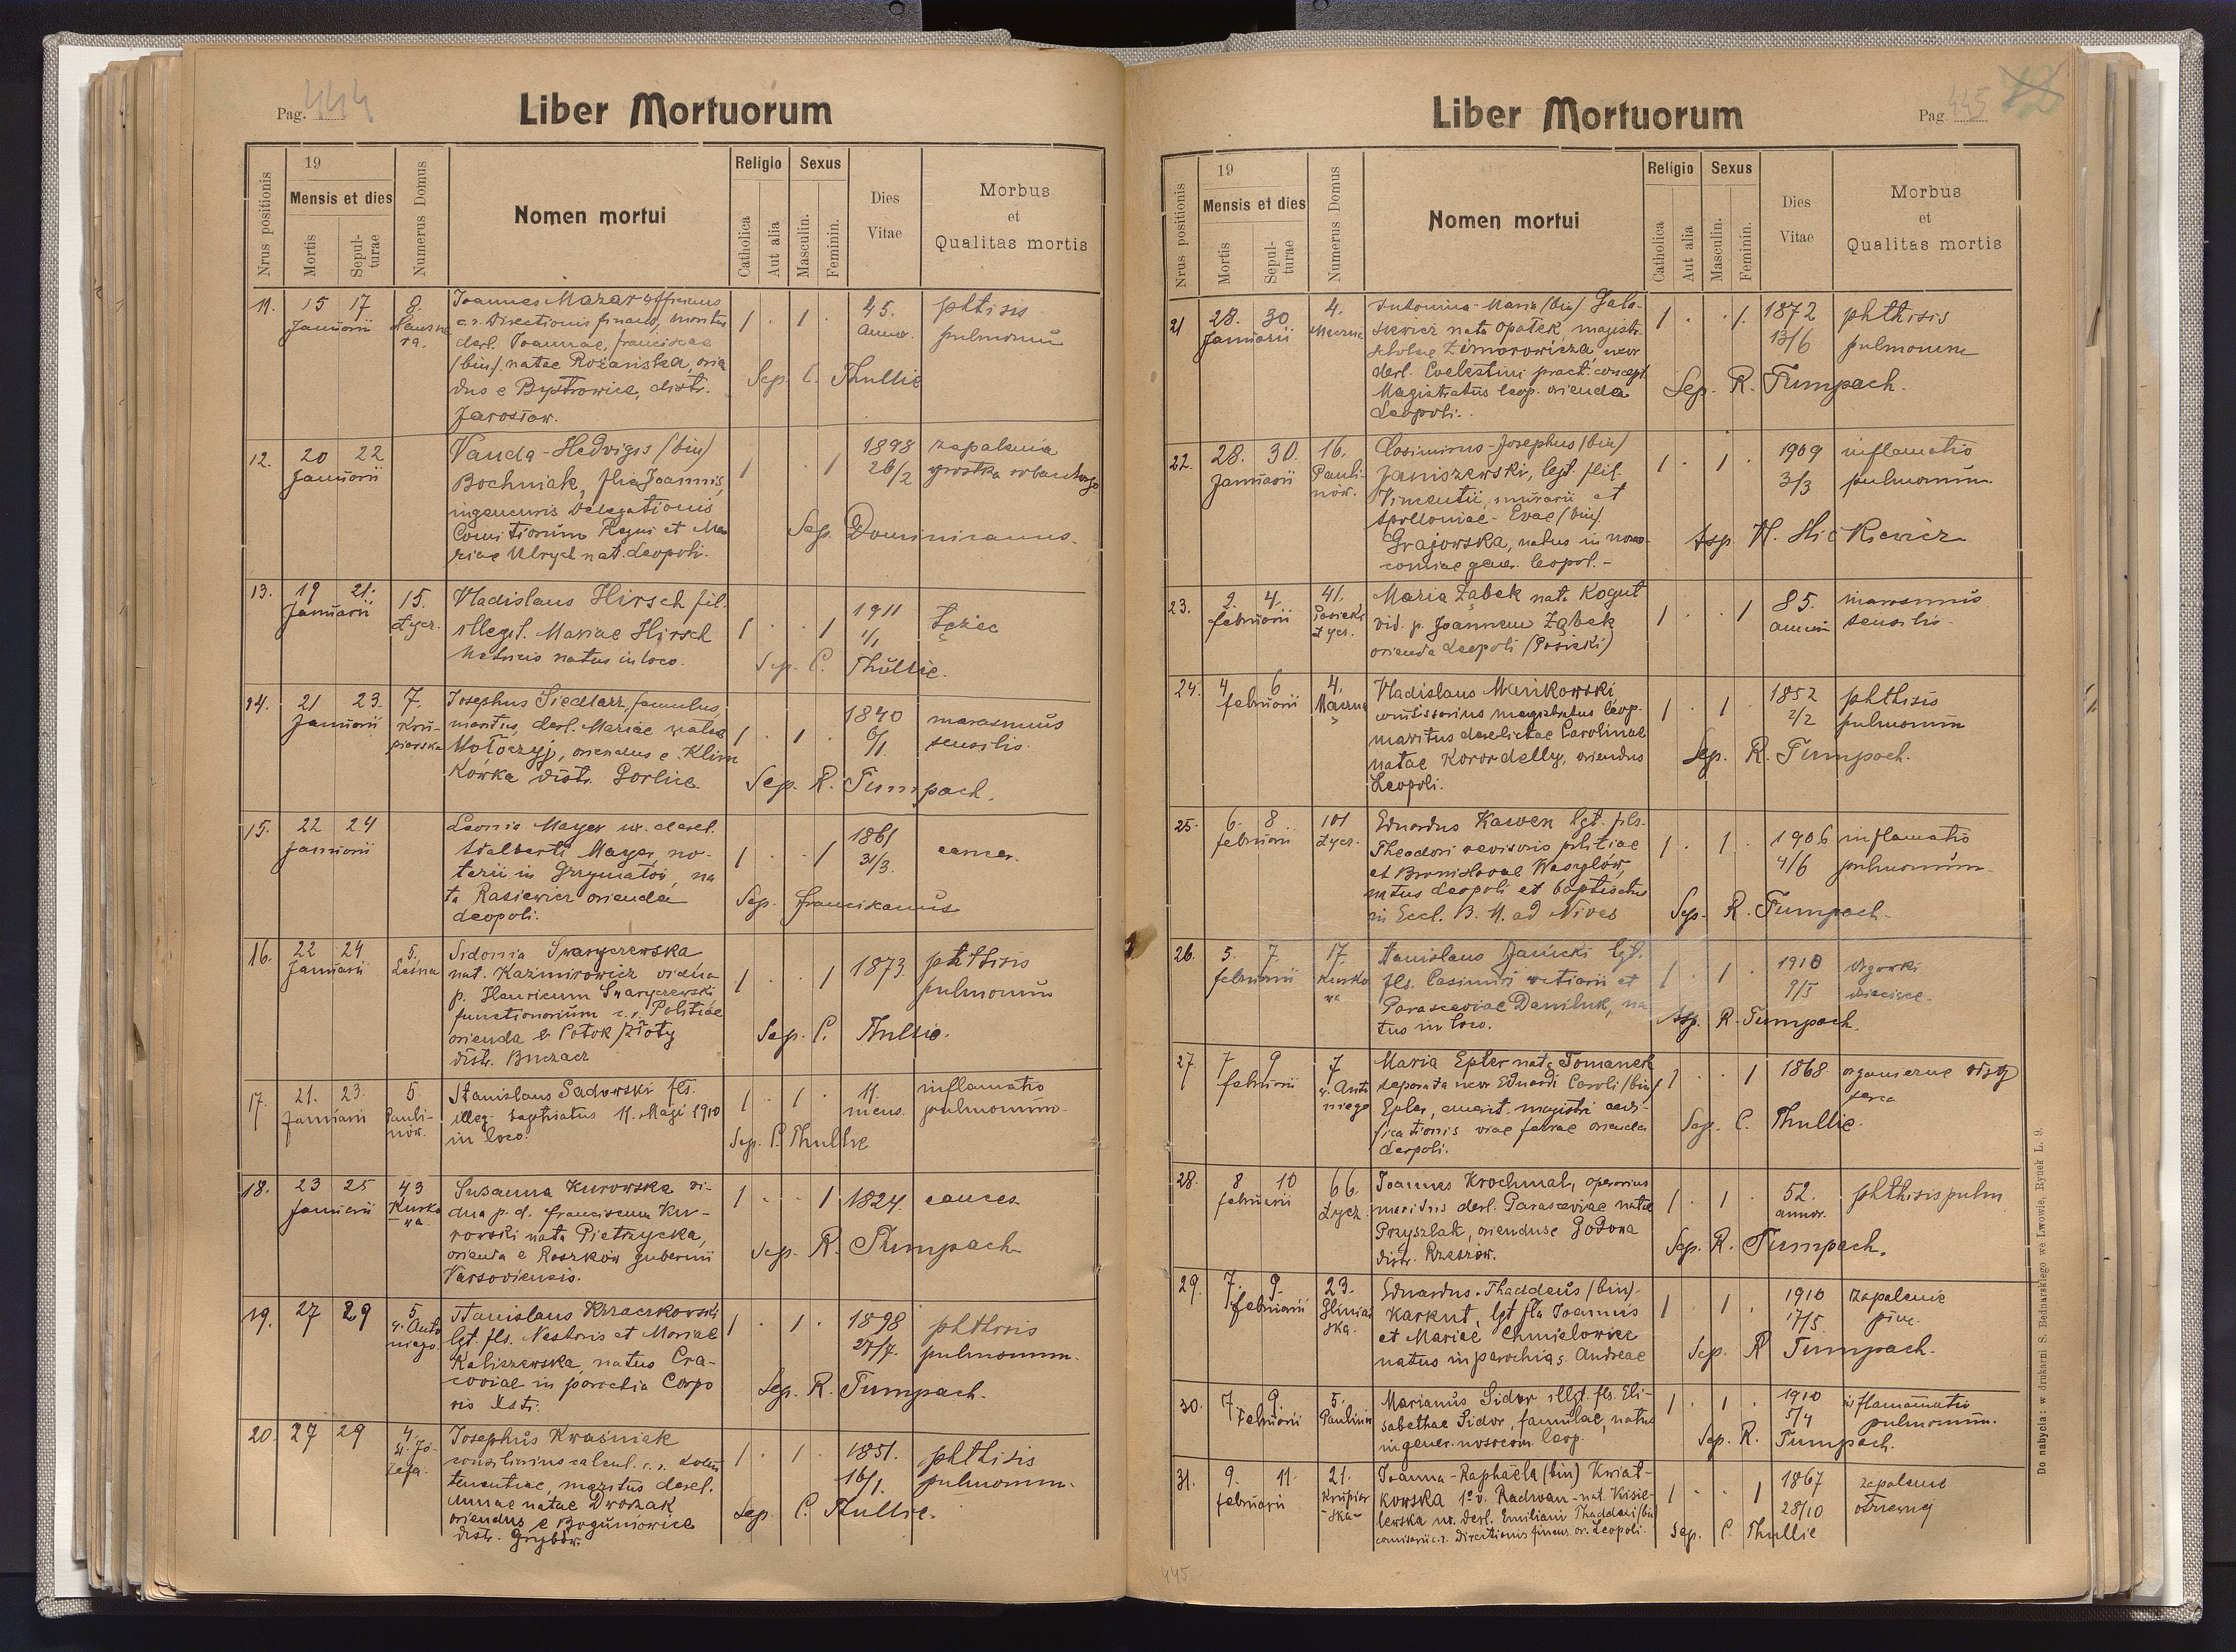 Pag. 444
Liber Mortuorum
Nrus positionis
19
Mensis et dies
Mortis
Sepulturae
Numerus Domus
Nomen mortui
Religio
Catholica
Aut alia
Sexus
Masculin.
Feminin.
Dies
Vitae
Morbus
et
Qualitas mortis
11. 15 17 8. Joannes Mazar officians 1 . 1 . 45. phtisis
Januarii c. r. Directionis financ, maritus annor. pulmonum
derel. Joannae, franciscae
(bin) natae Rożańska, orien
dus e Bystrowice, distr. Sep. C. Thullie
Jarosław.
12. 20 22 Vanda-Hedvigis (bin) 1 . . 1 1898 zapalenia
Januarii Bochniak, filia Joannis, 26/2 robaczkowego
ingenieuris Delegationis
Comitiorum Regni et Ma Sep. Dominicanus.
riae Ulrych nat. Leopoli.
13. 19 21. 15. Vladislaus Hirsch fil. 1 . . 1 1911 Tężec
Januarii Łycz. illegit. Mariae Hirsch 1/1
natus in loco. Sep. C. Thullie.
14. 21 23. 7. Josephus Siedlarz, famulus, 1 . 1 . 1840 marasmus
Januarii Krupiarska maritus, derel. Mariae natae 6/1. senilis.
Mołoczyj, oriendus e Klim
kówka distr. Gorlice Sep. R. Tumpach.
15. 22 24 Leonia Mayer ux. derel. 1 . . 1 1861 cancer.
Januarii Adalberti Mayer, no- 31/3.
tarii in Grzymałów, na
ta Rasiewicz orienda Sep. franciskanus
Leopoli.
16. 22 24 5. Sidonia Swaryczewska 1 . . 1 1873. phthisis
Januarii Leśna nat. Kazimirowicz vidua pulmonum
p. Henricum Swaryczewski
functionarium c. r. Politiae
orienda e Potok złoty Sep. C. Thullie.
distr. Buczacz
17. 21. 23. 5. Stanislaus Sadowski fls. 1 . 1 . 11. inflamatio
Januarii Paulinów. illeg. baptisatus 11. Maji 1910 mens. pulmonum.
in loco. Sep. C. Thullie
18. 23 25 43 Susanna Kurowska vi- 1 . . 1 1824. cancer
Januarii Kurkowa dua p. d. franciscum Ku-
rowski nata Pietrzycka,
orienda e Roszków gubernii Sep. R. Tumpach
Varsoviensis.
19. 27 29 5 Stanislaus Krzaczkowski 1 . 1 . 1898 phthisis
ś. Antoniego lgt. fls. Nestoris et Mariae 27/7. pulmonum.
Kaliszewska, natus Cra-
coviae in parochia Corpo Sep. R. Tumpach.
ris Xsti.
20. 27 29 4. Josephus Kwaśniak 1 . 1 . 1851. phthisis
św. Józefa. consiliarius calcul. c. r. Locum 16/1. pulmonum.
tenentiae, maritus derel.
Annae natae Dworzak Sep. C. Thullie.
oriendus e Boguniowice
distr. Grybów.
Liber Mortuorum
Pag. 445
Nrus positionis
19
Mensis et dies
Mortis
Sepulturae
Numerus Domus
Nomen mortui
Religio
Catholica
Aut alia
Sexus
Masculin.
Feminin.
Dies
Vitae
Morbus
et
Qualitas mortis
21 28. 30 4. Antonina-Maria (bin) 1 . . 1. 1872 phthisis
Januarii Mauzna siewicz nata Opałek, magistr. 13/6 pulmonum
scholae Zimorowicza, uxor
derl. Coelestini pract. concept. Sep. R. Tumpach.
Magistratus leop. orienda
Leopoli.
22. 28. 30. 16. Casimirus-Josephus (bin) 1 . 1 . 1909 inflamatio
Januarii Paulinów. Janiszewski, legt. fil. 3/3 pulmonum.
Vincentii, murarii et
Apolloniae-Evae (bin)
Grajowska, natus in noso- Sep.
comiae gener. leopol.-
23. 2. 4. 41. Maria Ząbek nata Kogut 1 . . 1 85. marasmus
februarii Pasieki Łycz. vid. p. Joannem Ząbek annor. senilis.
orienda Leopoli (Pasieki)
24. 4 6 4. Vladislaus Mańkowski 1 . 1 . 1852 phthisis
februarii comissarius magistratus leop. 2/2 pulmonum
maritus derelictae Carolinae Sep. R. Tumpach.
natae Korordelly, oriendus
Leopoli.
25. 6. 8 101 Eduardus Kawen lgt. fils. 1 . 1 . 1906 inflamatio
februarii Łycz. Theodori revisoris politiae 4/6 pulmonum.
et Bronislavae Wasylów,
natus Leopoli et baptisatus
in Eccl. B. M. ad Nives Sep. R. Tumpach.
26. 5. 7. 17. Stanislaus Janicki lgt. 1 . 1 . 1910 drgawki
februarii Kurkowa fls. Casimiri et 9/5 dziecięce.
Parasceviae Daniluk, na
tus in loco. Sep. R. Tumpach.
27. 7 9 7 Maria Epler nata Tomanek 1 . . 1 1868 organiczne
februarii ś. Antoniego separata uxor Eduardi Caroli (bin) serca
Epler, emerit. magistri aedi-
ficationis viae ferrae orienda Sep. C. Thullie.
Leopoli.
28. 8 10 66. Joannes Krochmal, operarius 1 . 1 . 52. phthisis pulm
februarii Łycz. maritus derl. Parasceviae natae annor.
Przyszlak, oriendus e Godowa
distr. Rzeszów. Sep. R. Tumpach.
29. 7. 9. 23. Eduardus-Thaddeus (bin) 1 1 . 1910 zapalenie
februarii Gliniańska. Karkut, lgt fls Joannis 17/5 płuc.
et Mariae Chmielowiec
natus in parochia s. Andreae Sep. R Tumpach.
30. 7. 9. 5. Marianus Sidor illgt. fls. Eli- 1 . 1 . 1910 inflammatio
Februarii Paulinów sabethae Sidor, famulae, natus 5/4 pulmonum.
in gener. nosocom. leop. Sep. R. Tumpach.
31. 9. 11. 21. Joanna-Raphaëla (bin) Kwiat- 1 . . 1 1867 zapalenie
februarii Krupiarska kowska 1o v. Radwan-nat. Kisie- 28/10 otrzewnej
lewska ux. derl. Emiliani Thaddaei (bin)
comisarii c. r. Directionis financ. or. Leopoli. Sep. C. Thullie
Do nabycia: w drukarni S. Bednarskiego we Lwowie, Rynek L. 9.
445